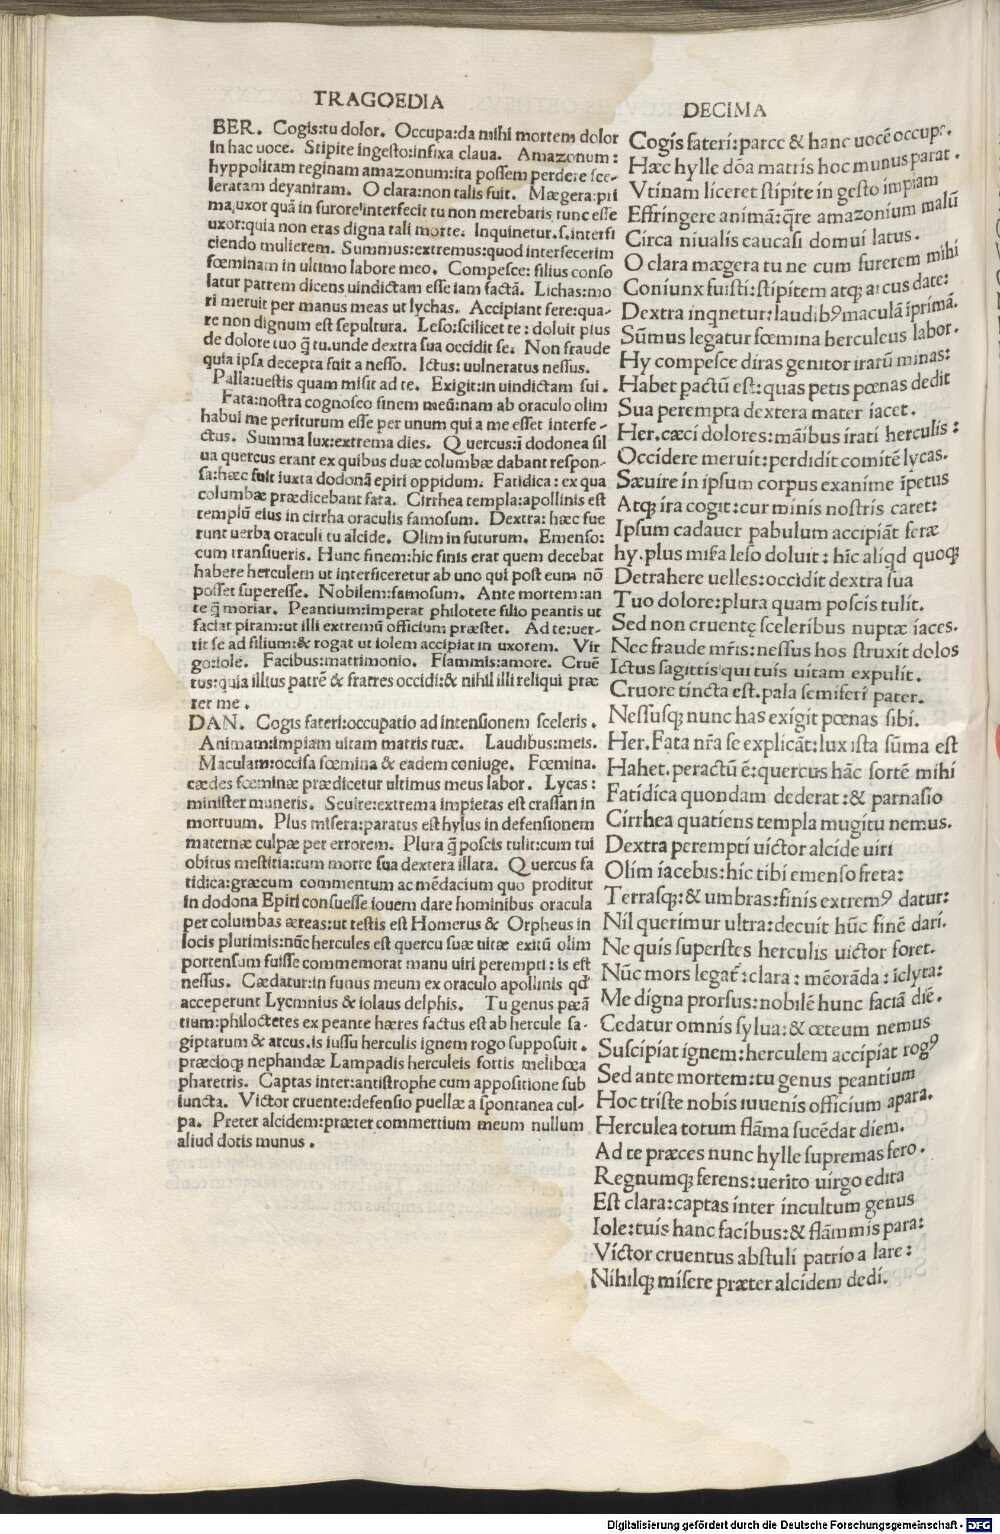 TRAGOEDIA
DECIMA
BER. Cogis:tu dolor. Occupa:da mihi mortem dolor
in hac uoce. Stipite ingesto:infixa claua. Amazonum:
hyppolitam reginam amazonum:ita possem perdere sce-
leratam deyaniram. O clara:non talis fuit. Mægera:pri
ma uxor quā in furore interfecit tu non merebaris tunc esse
uxor:quia non eras digna tali morte. Inquinetur.s.interfi
ciendo mulierem. Summus:extremus:quod interfecerim
fœminam in ultimo labore meo. Compesce: filius conso
latur patrem dicens uindictam esse iam factā. Lichas:mo
ri meruit per manus meas ut lychas. Accipiant fere:qua-
re non dignum est sepultura. Leso:scilicet te: doluit plus
de dolore tuo q̄ tu.unde dextra sua occidit se. Non fraude
quia ipsa decepta fuit a nesso. Ictus: uulneratus nessus.
Palla:uestis quam misit ad te. Exigit:in uindictam sui.
Fata:nostra cognosco finem meū:nam ab oraculo olim
habui me periturum esse per unum qui a me esset interfe-
ctus. Summa lux:extrema dies. Quercus:ī dodonea sil
ua quercus erant ex quibus duæ columbæ dabant respon-
sa:hæc fuit iuxta dodonā epiri oppidum. Fatidica: ex qua
columbæ prædicebant fata. Cirrhea templa:apollinis est
templū eius in cirrha oraculis famosum. Dextra: hæc fue
runt uerba oraculi tu alcide. Olim in futurum. Emenso:
cum transiueris. Hunc finem:hic finis erat quem decebat
habere herculem ut interficeretur ab uno qui post eum nō
posset superesse. Nobilem:famosum. Ante mortem:an
te q̄ moriar. Peantium:imperat philotete filio peantis ut
faciat piram:ut illi extremū officium præstet. Ad te:uer-
tit se ad filium:& rogat ut iolem accipiat in uxorem. Vir
go:iole. Facibus:matrimonio. Flammis:amore. Cruē
tus:quia illius patrē & fratres occidi:& nihil illi reliqui præ
ter me.
DAN. Cogis fateri:occupatio ad intensionem sceleris.
Animam:impiam uitam matris tuæ. Laudibus:meis.
Maculam:occisa fœmina & eadem coniuge. Fœmina.
cædes fœminæ prædicetur ultimus meus labor. Lycas:
minister muneris. Seuire:extrema impietas est crassari in
mortuum. Plus misera:paratus est hylus in defensionem
maternæ culpæ per errorem. Plura q̄ poscis tulit:cum tui
obitus mestitia:tum morte sua dextera illata. Quercus fa
tidica:græcum commentum ac mēdacium quo proditur
in dodona Epiri consuesse iouem dare hominibus oracula
per columbas æreas:ut testis est Homerus & Orpheus in
locis plurimis:nūc hercules est quercu suæ uitæ exitū olim
portensum fuisse commemorat manu uiri perempti: is est
nessus. Cædatur:in funus meum ex oraculo apollinis qd̓
acceperunt Lycmnius & iolaus delphis. Tu genus pæā
tium:philoctetes ex peante hæres factus est ab hercule sa-
giptarum & arcus.is iussu herculis ignem rogo supposuit.
præcioq; nephandæ Lampadis herculeis fortis melibœa
pharetris. Captas inter:antistrophe cum appositione sub
iuncta. Victor cruente:defensio puellæ a spontanea cul-
pa. Preter alcidem:præter commertium meum nullum
aliud dotis munus.
Cogis fateri:parce & hanc uocē occupa.
Hæc hylle dōa matris hoc munus parat.
Vtinam liceret stipite in gesto impiam
Effringere animā:q̄re amazonium malū
Circa niualis caucasi domui latus.
O clara mægera tu ne cum furerem mihi
Coniunx fuisti:stipitem atq; arcus date:
Dextra inqnetur:laudibꝰ maculā īprimā.
Sūmus legatur fœmina herculeus labor.
Hy compesce diras genitor irarū minas:
Habet pactū est:quas petis pœnas dedit
Sua perempta dextera mater iacet.
Her.cæci dolores:māibus irati herculis:
Occidere meruit:perdidit comitē lycas.
Sæuire in ipsum corpus exanime īpetus
Atq; ira cogit:cur minis nostris caret:
Ipsum cadauer pabulum accipiāt feræ
hy.plus mis̄a leso doluit: hīc aliqd quoq;
Detrahere uelles:occidit dextra sua
Tuo dolore:plura quam poscis tulit.
Sed non cruentę sceleribus nuptæ iaces.
Nec fraude mr̄is:nessus hos struxit dolos
Ictus sagittis qui tuis uitam expulit.
Cruore tincta est.pala semiferi pater.
Nessusq; nunc has exigit pœnas sibi.
Her.Fata nr̄a se explicāt:lux ista sūma est
Hahet.peractū ē:quercus hāc sortē mihi
Fatidica quondam dederat:& parnasio
Cirrhea quatiens templa mugitu nemus.
Dextra perempti uictor alcide uiri
Olim iacebis:hic tibi emenso freta:
Terrasq;:& umbras:finis extremꝰ datur:
Nil querimur ultra:decuit hūc finē dari.
Ne quis superstes herculis uictor foret.
Nūc mors legat̄: clara: mēorāda: īclyta:
Me digna prorsus:nobilē hunc faciā diē.
Cedatur omnis sylua:& œteum nemus
Suscipiat ignem:herculem accipiat rogꝰ
Sed ante mortem:tu genus peantium
Hoc triste nobis iuuenis officium apara.
Herculea totum flāma sucēdat diem.
Ad te præces nunc hylle supremas fero.
Regnumq; ferens:uerito uirgo edita
Est clara:captas inter incultum genus
Iole:tuis hanc facibus:& flāmmis para:
Victor cruentus abstuli patrio a lare:
Nihilq; misere præter alcidem dedi.
Digitalisierung gefördert durch die Deutsche Forschungsgemeinschaft - DFG